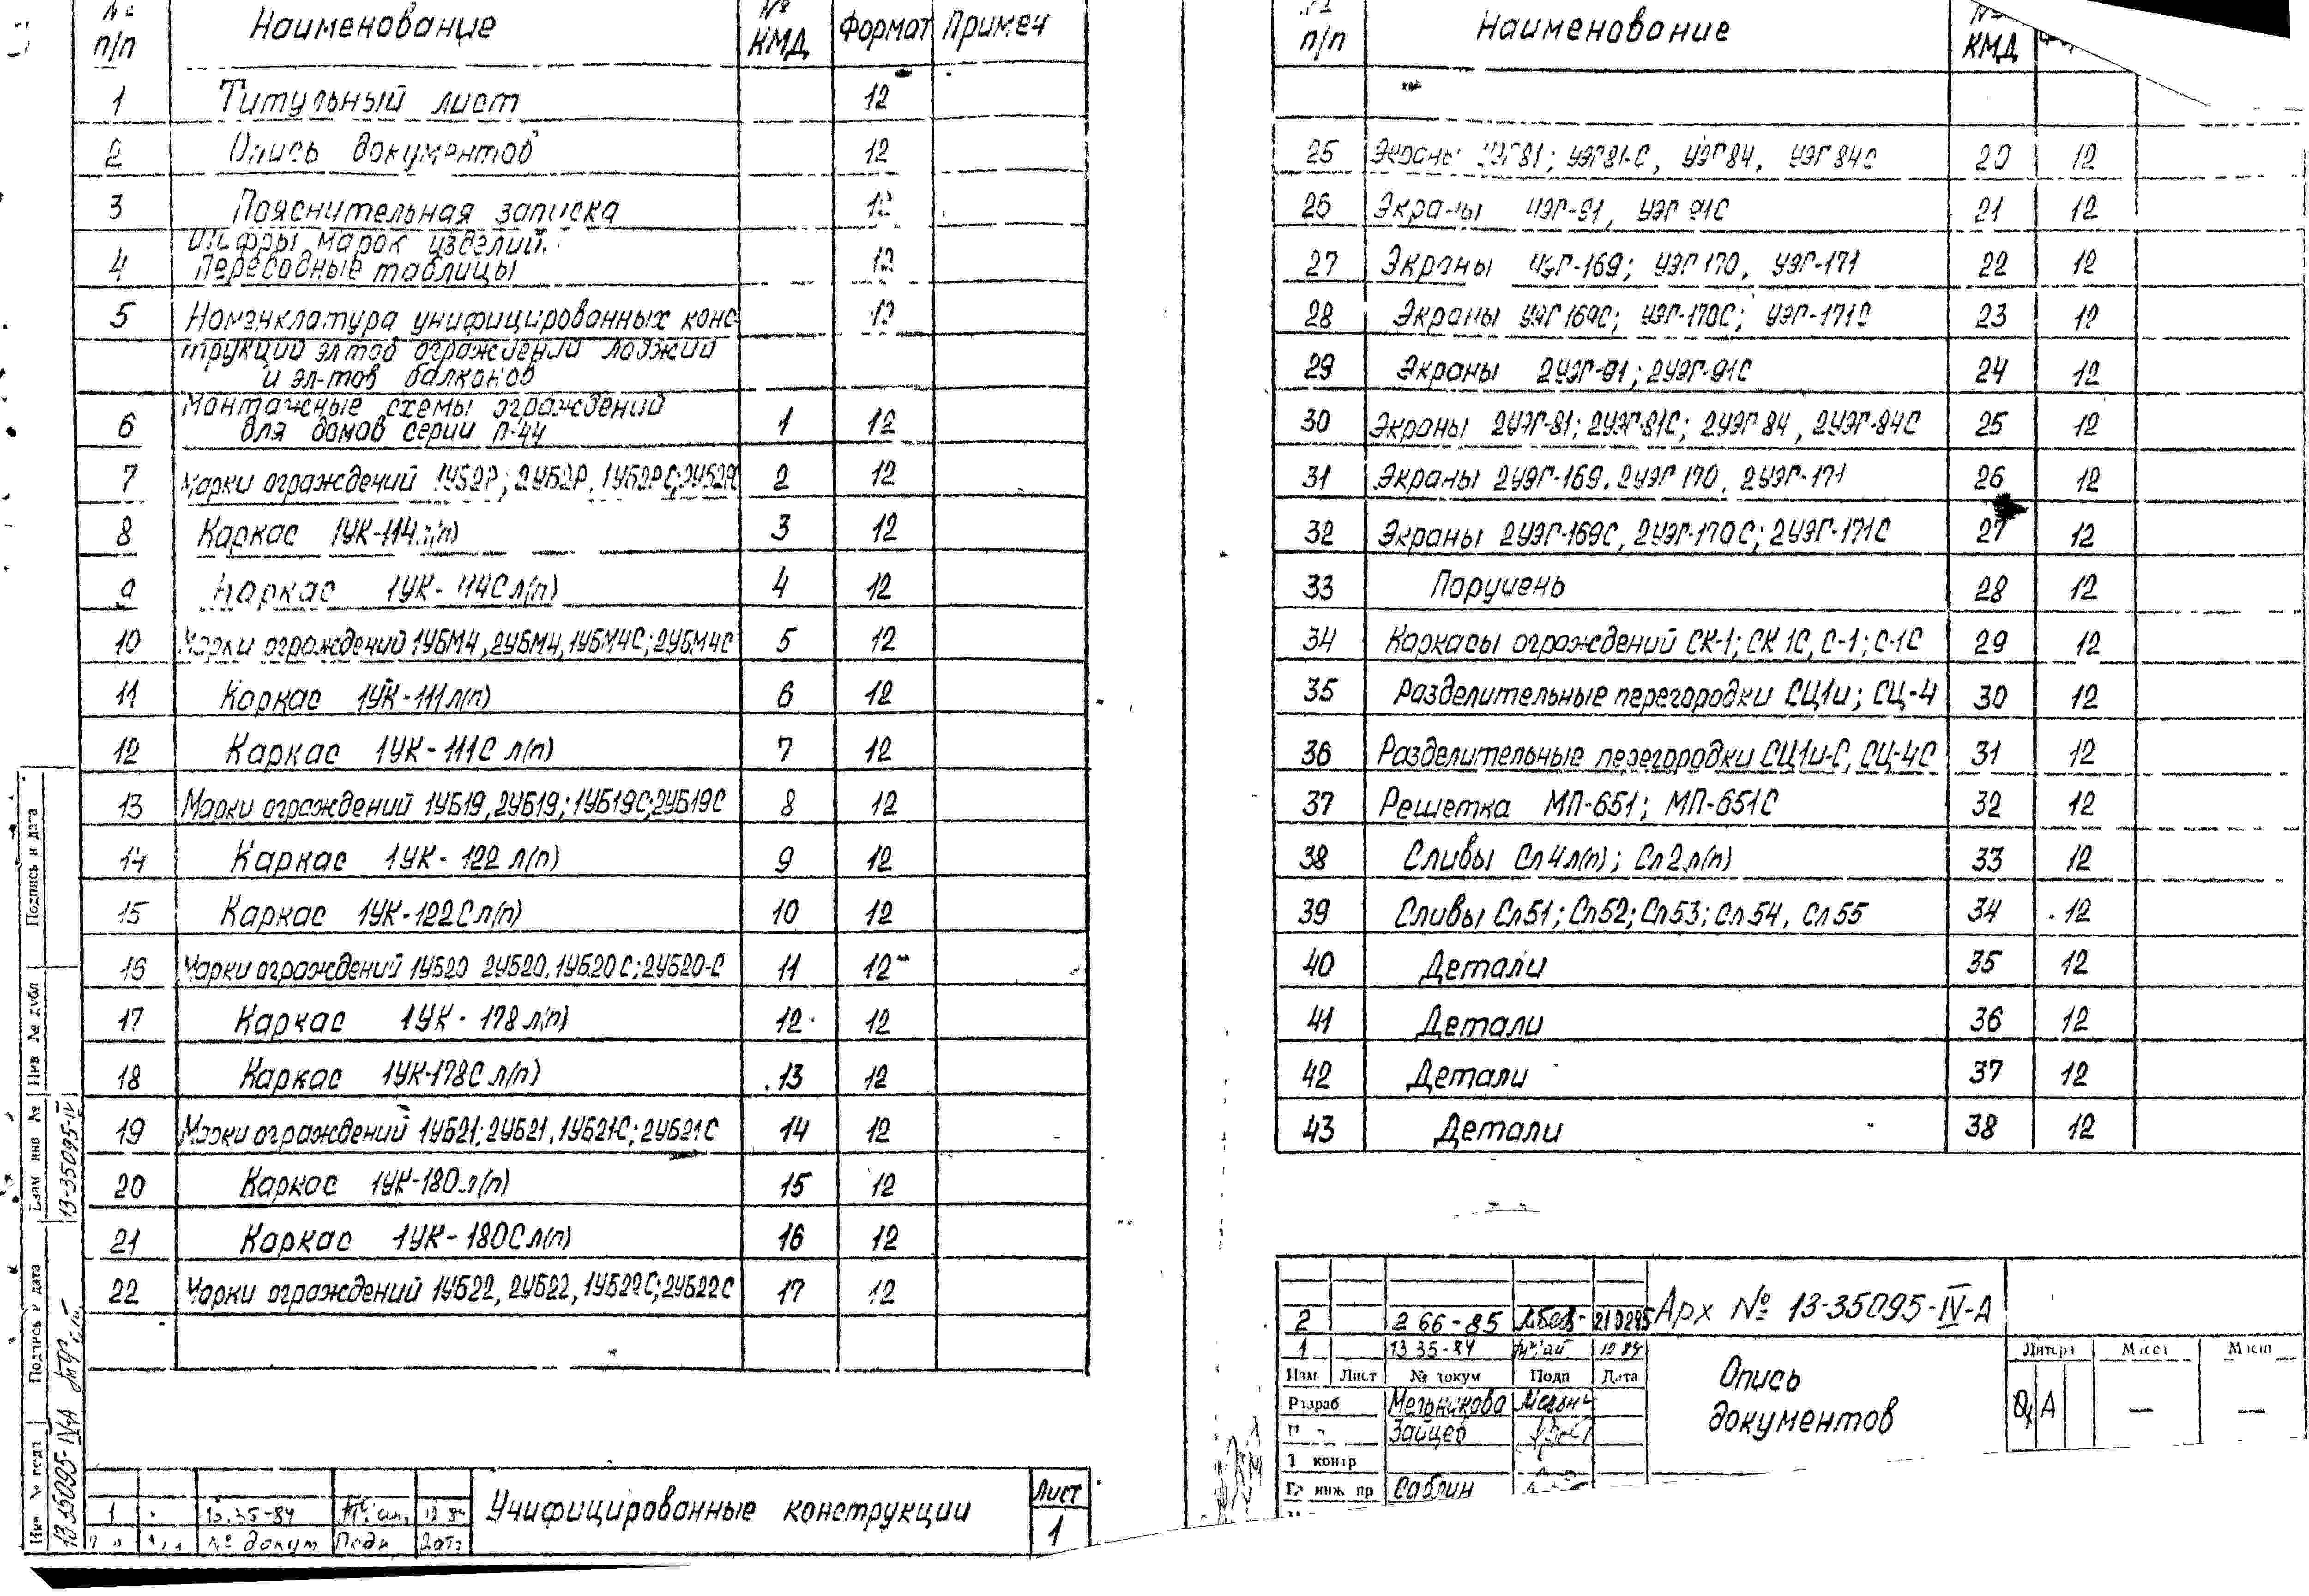 № п/п Наименование № КМД Формат Примеч
1 Титульный лист 12
2 Опись документов 12
3 Пояснительная записка 12
Шифры марок изделий.
4 Переводные таблицы 12
5 Номенклатура унифицированных конс- 12
трукций эл.тов ограждений лоджий
и эл-тов балконов
Монтажные схемы ограждений
6 для домов серии П-44 1 12
7 Марки ограждений 1УБ2Р; 2УБ2Р, 1УБ2РС; 2УБ2РС 2 12
8 Каркас 1УК-114 л(п) 3 12
9 Каркас 1УК-114С л(п) 4 12
10 Марки ограждений 1УБМ4, 2УБМ4, 1УБМ4С; 2УБМ4С 5 12
11 Каркас 1УК-111 л(п) 6 12
12 Каркас 1УК-111С л(п) 7 12
13 Марки ограждений 1УБ19, 2УБ19; 1УБ19С; 2УБ19С 8 12
14 Каркас 1УК-122 л(п) 9 12
15 Каркас 1УК-122С л(п) 10 12
16 Марки ограждений 1УБ20 2УБ20, 1УБ20С; 2УБ20-С 11 12
17 Каркас 1УК-178 л(п) 12 12
18 Каркас 1УК-178С л(п) 13 12
19 Марки ограждений 1УБ21; 2УБ21, 1УБ21С; 2УБ21С 14 12
20 Каркас 1УК-180 л(п) 15 12
21 Каркас 1УК-180С л(п) 16 12
22 Марки ограждений 1УБ22, 2УБ22, 1УБ22С; 2УБ22С 17 12
Подпись и дата
Инв № дубл
Взам инв №
13-35095-IV
Подпись и дата
Инв № подл
13-35095-IV-А
1 13.35-84 12 84
№ докум Подп Дата
Унифицированные конструкции
Лист
1
№ п/п Наименование № КМД
25 Экраны УЭГ81; УЭГ81-С, УЭГ84, УЭГ84С 20 12
26 Экраны УЭГ-91, УЭГ 91С 21 12
27 Экраны УЭГ-169; УЭГ 170, УЭГ-171 22 12
28 Экраны УЭГ 169С; УЭГ-170С; УЭГ-171С 23 12
29 Экраны 2УЭГ-91; 2УЭГ-91С 24 12
30 Экраны 2УЭГ-81; 2УЭГ-81С; 2УЭГ 84, 2УЭГ-84С 25 12
31 Экраны 2УЭГ-169, 2УЭГ 170, 2УЭГ-171 26 12
32 Экраны 2УЭГ-169С, 2УЭГ-170С; 2УЭГ-171С 27 12
33 Поручень 28 12
34 Каркасы ограждений СК-1; СК 1С, С-1; С-1С 29 12
35 Разделительные перегородки СЦ1и; СЦ-4 30 12
36 Разделительные перегородки СЦ1и-С, СЦ-4С 31 12
37 Решетка МП-651; МП-651С 32 12
38 Сливы Сл4л(п); Сл2л(п) 33 12
39 Сливы Сл51; Сл52; Сл53; Сл54, Сл55 34 12
40 Детали 35 12
41 Детали 36 12
42 Детали 37 12
43 Детали 38 12
2 266-85 210285
1 13 35-84 12 84
Изм Лист № докум Подп Дата
Разраб Мельникова
Зайцев
Т контр
Гл инж пр Саблин
Арх № 13-35095-IV-А
Опись
документов
Литера Масса Масшт
А — —